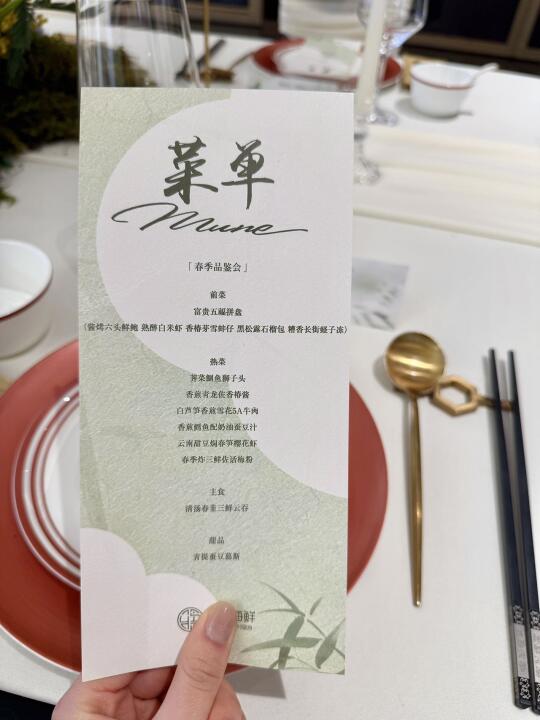 菜单
Mune
「春季品鉴会」
前菜
富贵五福拼盘
(酱烤六头鲜鲍 熟醉白米虾 香椿芽雪蚌仔 黑松露石榴包 糟香长街蛏子冻)
热菜
荠菜鮰鱼狮子头
香煎青龙佐香椿酱
白芦笋香煎雪花5A牛肉
香煎鳕鱼配奶油蚕豆汁
云南甜豆焖春笋樱花虾
春季炸三鲜佐话梅粉
主食
清汤春韭三鲜云吞
甜品
青提蚕豆慕斯
海鲜